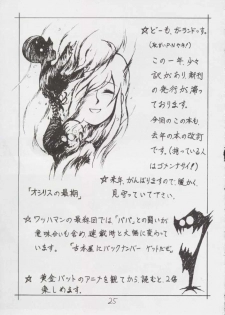 ☆どーも、ガーランドっす。
この一年、少々
訳があり、新刊
の発行が滞っ
ております。
今回のこの本も
去年の本の改訂
です。(持っている人
はゴメンナサイ!)
☆来年、がんばりますので、暖かく
見守っていて下さい。
「オシリスの最期」
☆ワッハマンの最終回では「パパ」との闘いが
意味合いも含め連載時と大幅に変わって
います。「古本屋にバックナンバーゲットだぜ。」
☆黄金バットのアニメを観てから読むと、2倍
楽しめます。
25